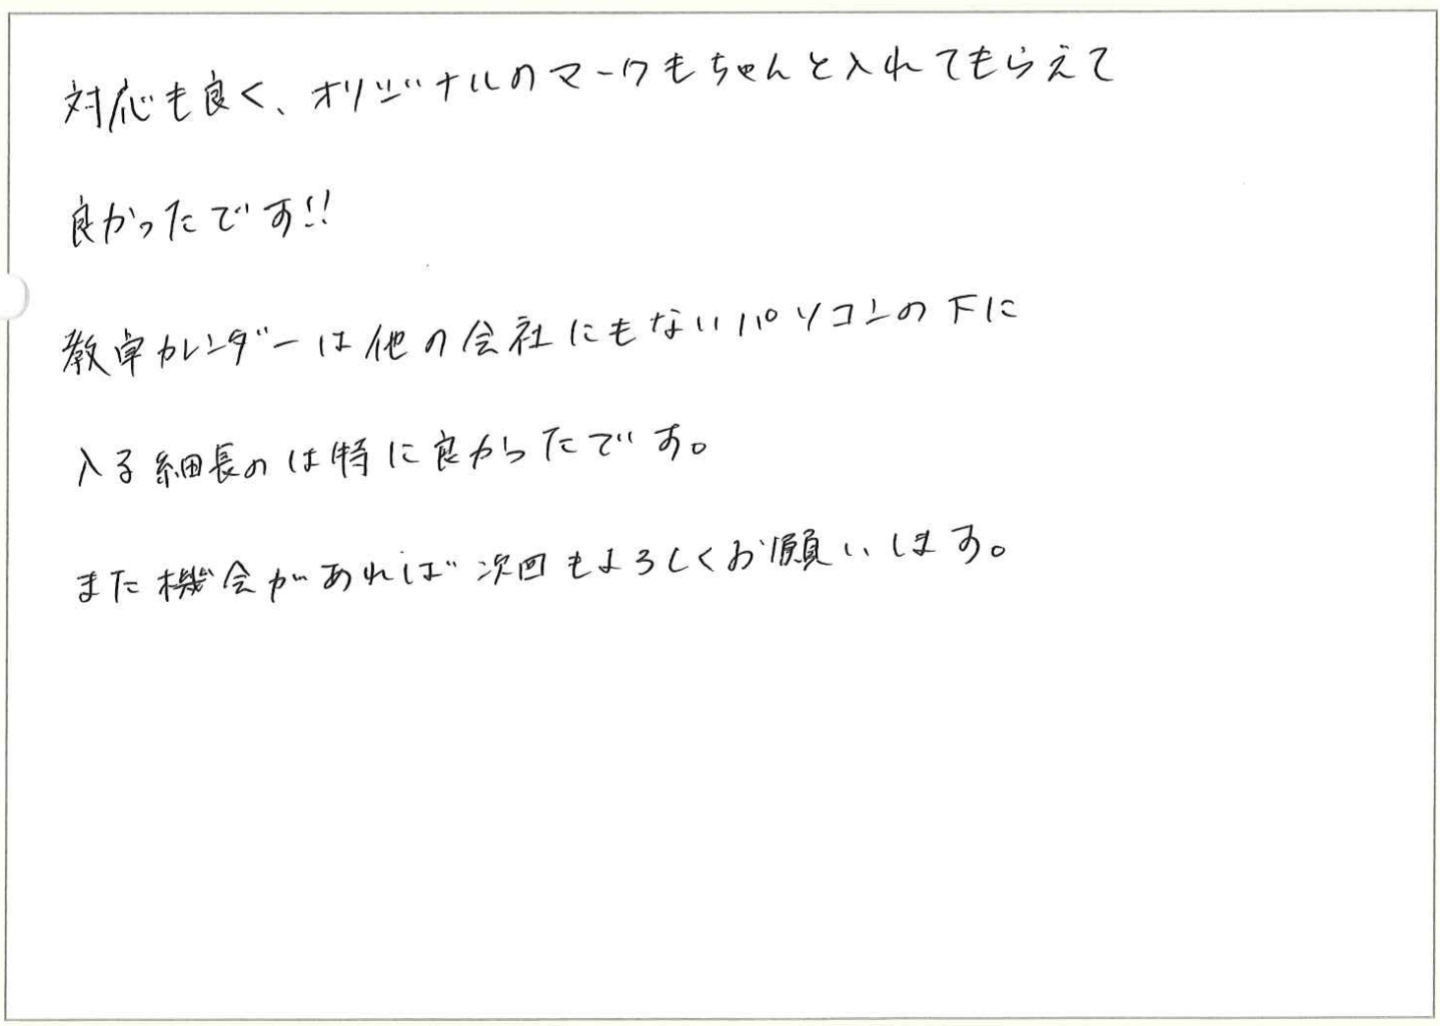 対応も良く、オリジナルのマークもちゃんと入れてもらえて
良かったです!!
教卓カレンダーは他の会社にもないパソコンの下に
入る細長のは特に良かったです。
また機会があれば次回もよろしくお願いします。